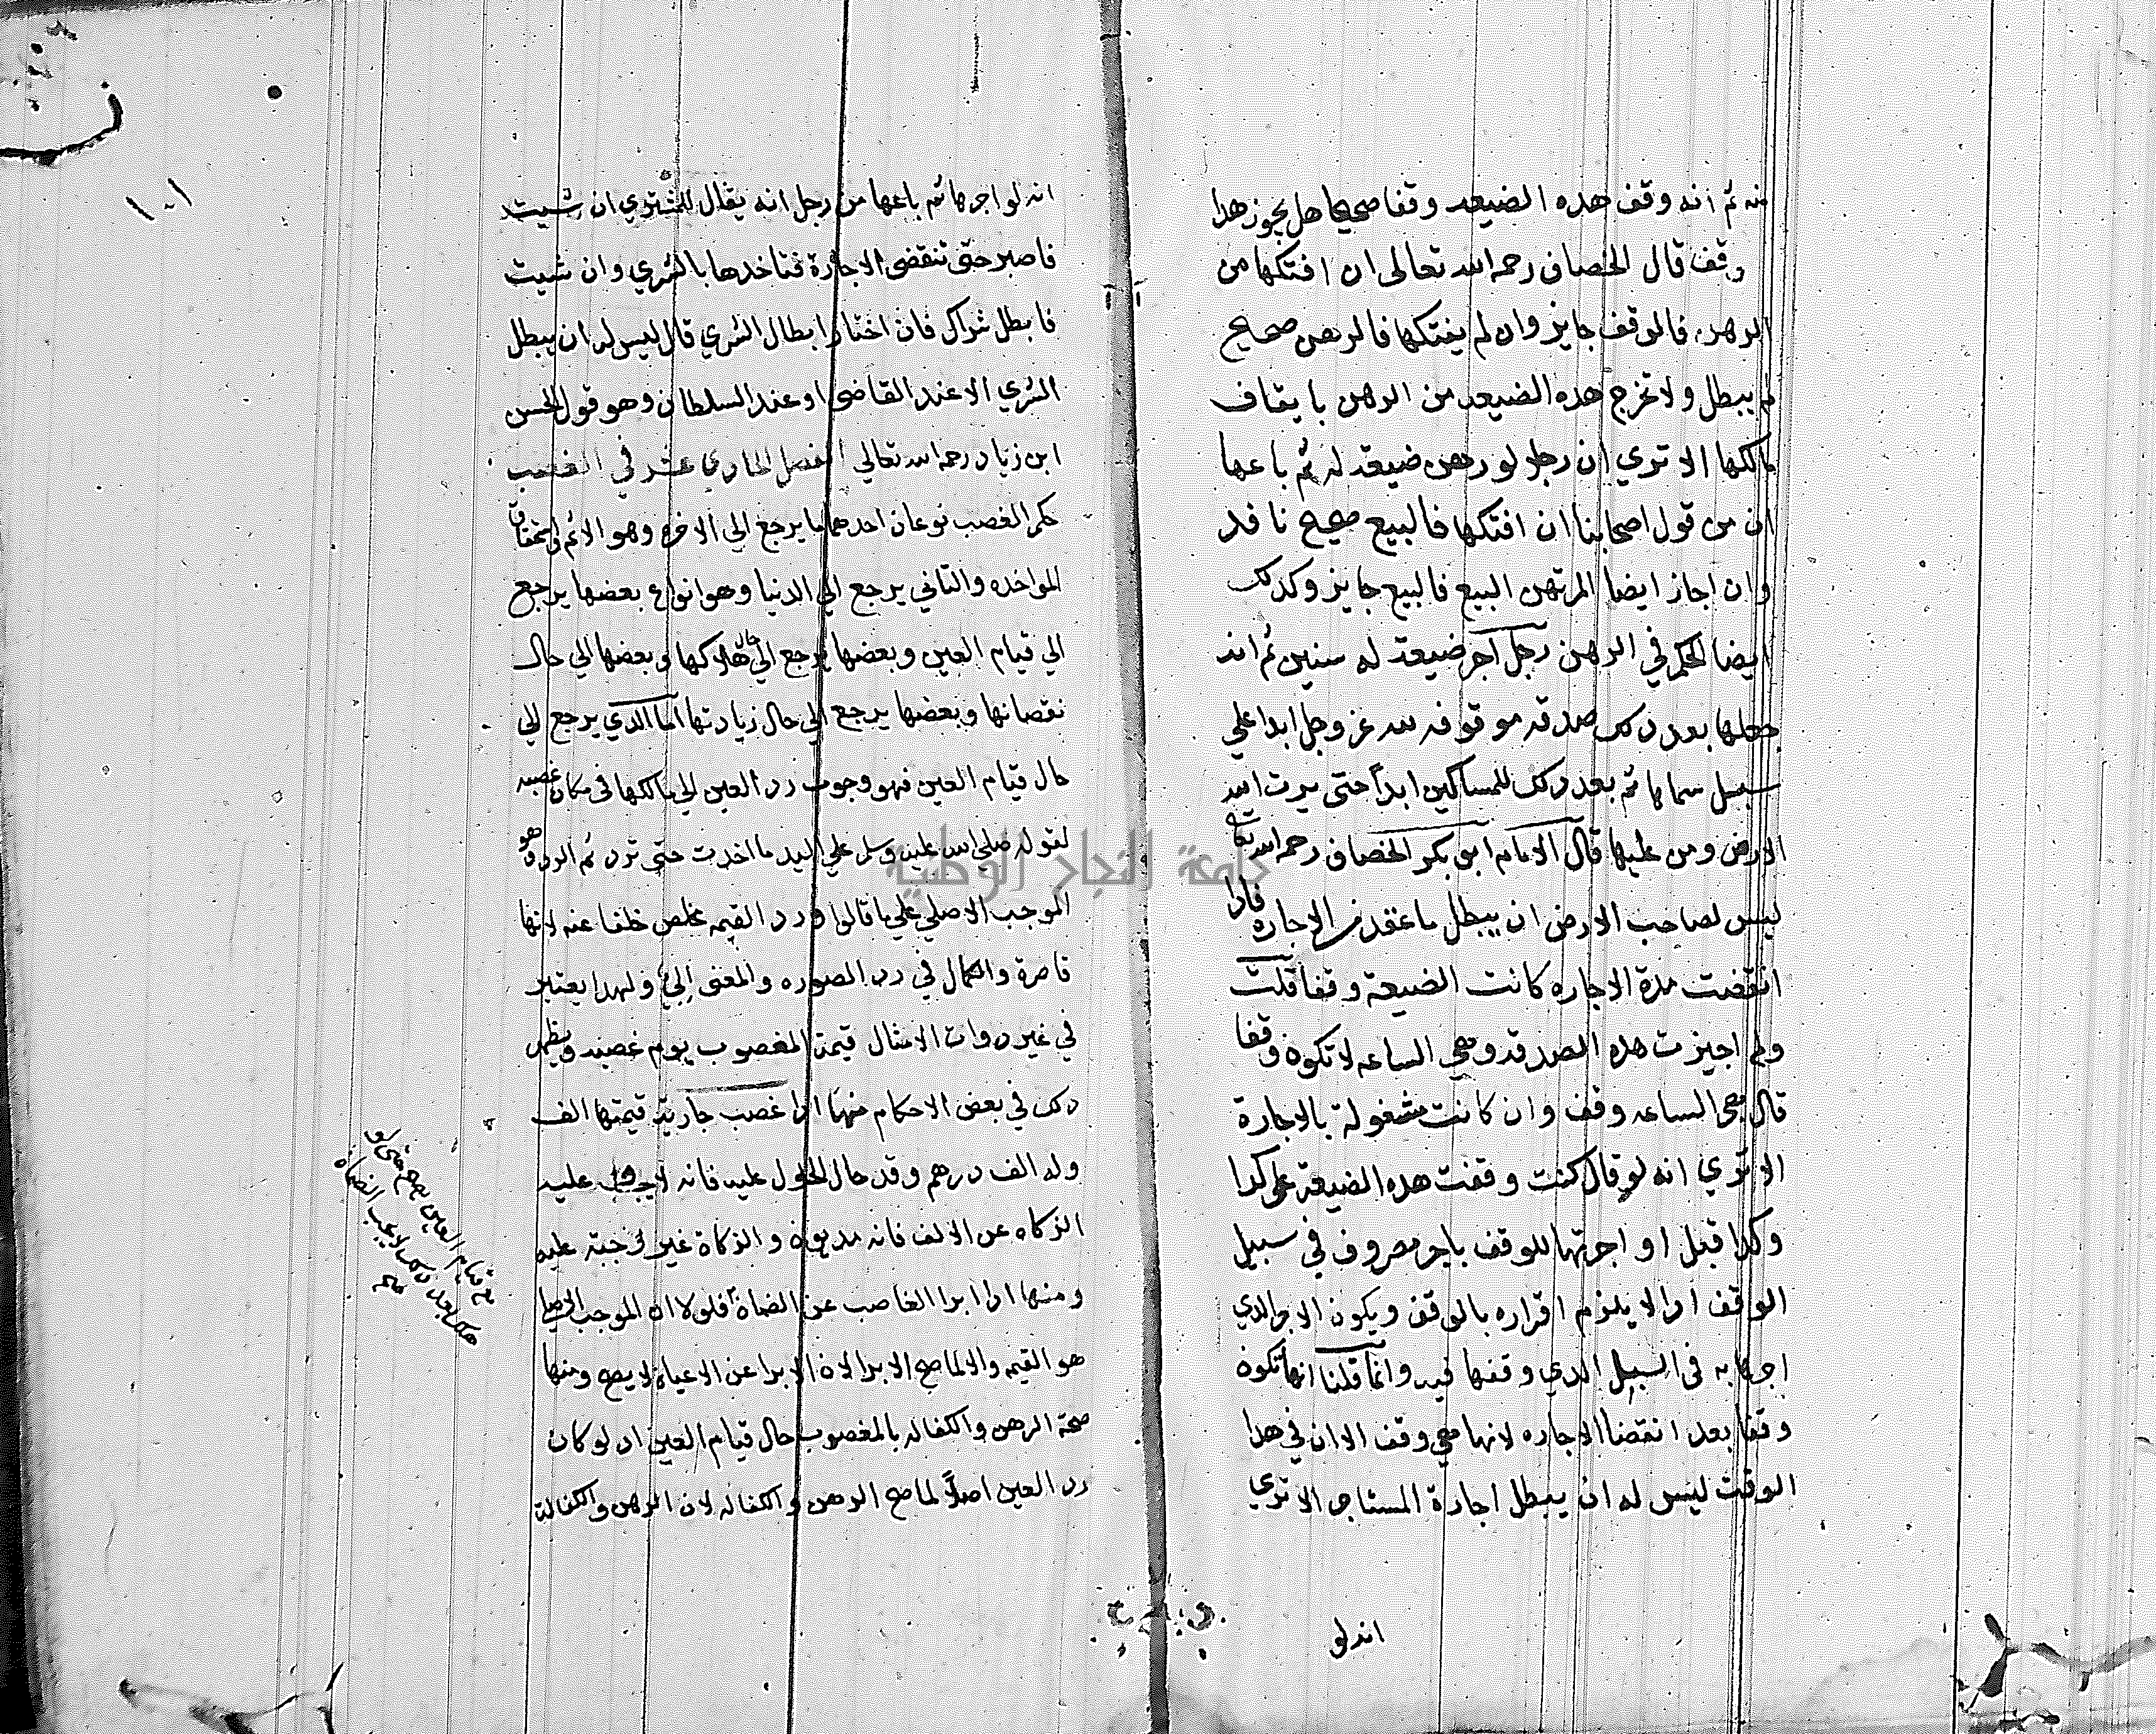 منه ثم انه وقف هده الضيعه وقفا صحيحا هل يجوز هدا
وقف قال الخصاف رحمه الله تعالى ان افتكها من
الرهن فالوقف جايز وان لم يفتكها فالرهن صحيح
لم يبطل ولا تخرج هده الضيعه من الرهن بايقاف
مالكها الا تري ان رجلا لو رهن ضيعة له ثم باعها
ان من قول اصحابنا ان افتكها فالبيع صحيح نافد
وان اجاز ايضا المرتهن البيع فالبيع جايز وكدلك
ايضا الحكم في الرهن رجل آجر ضيعة له سنين ثم انه
جعلها بعد دلك صدقه موقوفه لله عز وجل ابدا علي
سبيل سماها ثم بعد دلك للمساكين ابداً حتى يرث الله
الارض ومن عليها قال الامام ابي بكر الخصاف رحمه الله تعا
ليس لصاحب الارض ان يبطل ما عقد من الاجاره فادا
انقضت مدة الاجاره كانت الضيعة وقفا قلت
ولم اجيزت هده الصدقه وهي الساعه لا تكون وقفا
قال هي الساعه وقف وان كانت مشغولة بالاجارة
الا تري انه لو قال كنت وقفت هده الضيعة على كدا
وكدا قبل او اجرتها للوقف باجر مصروف في سبيل
الوقف ادا لا يلزم اقراره بالوقف ويكون الاجر الدي
اجرها به في السبيل الدي وقفها فيه وانما قلنا انها تكون
وقفا بعد انقضا الاجاره لانها هي وقف الان في هدا
الوقت ليس له ان يبطل اجارة المستاجر الا تري
انه لو
١٠١
انه لو اجرها ثم باعها من رجل انه يقال للمشتري ان شيت
فاصبر حتى تنقضى الاجارة فتاخدها بالشري وان شيت
فابطل شراك فان اختار ابطال الشري قال ليس له ان يبطل
الشري الا عند القاضى او عند السلطان وهو قول الحسن
ابن زياد رحمه الله تعالي الفصل الحادي عشر في الغصب
حكم الغصب نوعان احدهما ما يرجع الي الاخره وهو الاثم واستحقاق
المواخده والتاني يرجع الي الدنيا وهو انواع بعضها يرجع
الي قيام العين وبعضها يرجع الي حال هلاكها وبعضها الي حال
نقصانها وبعضها يرجع الي حال زيادتها اما الدي يرجع الي
حال قيام العين فهو وجوب رد العين الي مالكها في مكان غصبه
لقوله صلي الله عليه وسلم علي اليد ما اخدت حتى ترد ثم الرد هو
الموجب الاصلي علي ما قالوا ورد القيمه مخلص خلفا عنه لانها
قاصرة والكمال في رد الصوره والمعنى ولهدا يعتبر
في غير دوات الامثال قيمة المغصوب يوم غصبه ويظهر
دلك في بعض الاحكام منها ادا غصب جارية قيمتها الف
وله الف درهم وقد حال الحول عليه فانه لا يجب عليه
الزكاه عن الالف فانه مديون والزكاة غير واجبة عليه
ومنها ادا ابرا الغاصب عن الضمان فلولا ان الموجب الاصلي
هو القيمه والا لما صح الابرا لان الابرا عن الاعيان لا يصح ومنها
صحة الرهن والكفاله بالمغصوب حال قيام العين اد لو كان
رد العين اصلاً لما صح الرهن والكفاله لان الرهن والكفالة
مع قيام العين يصح حتى لو
هلك بعد دلك لا يجب الضمان
جامعة النجاح الوطنية